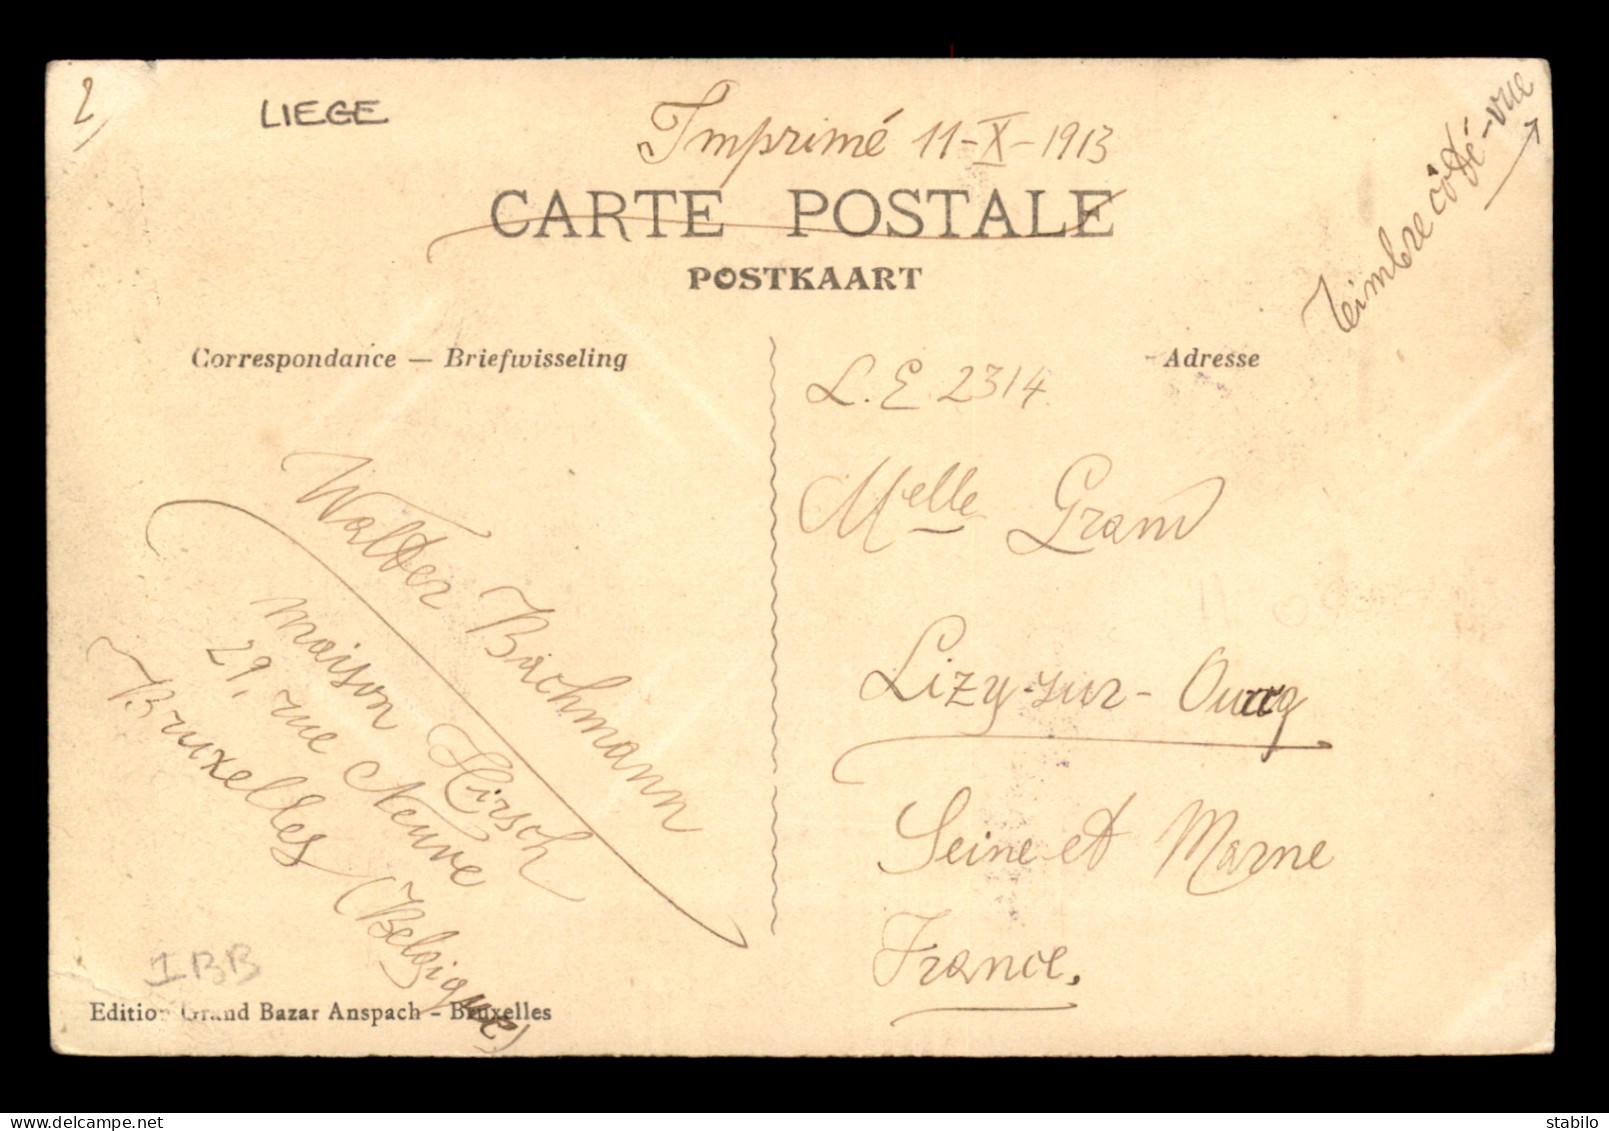 2)
LIEGE
Imprimé 11-X-1913
Timbre côté-vue
CARTE POSTALE
POSTKAART
Correspondance — Briefwisseling
Adresse
L.E. 2314
Melle Grand
Lizy-sur-Ourcq
Seine et Marne
France.
Walter Bachmann
maison Hirsch
29, rue Neuve
Bruxelles (Belgique)
IBB
Edition Grand Bazar Anspach - Bruxelles
stabilo